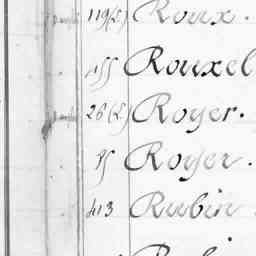 119(2) Roux.
155 Rouxel
26(2) Royer.
25 Royer.
413 Rubin